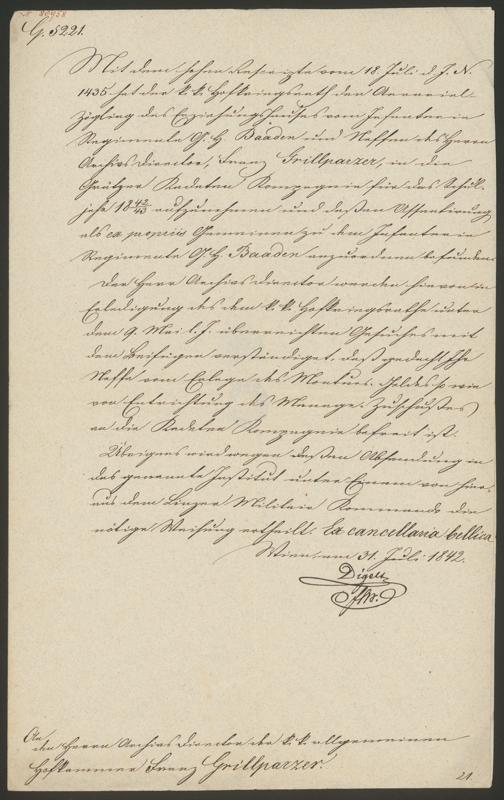 G. 5221.
Mit dem hohen Rescripte vom 18. Juli d. J. N.
1435 hat der k. k. Hofkriegsrath den Aerarial
Zögling des Erziehungshauses vom Infanterie
Regimente G. H. Baaden und Neffen des Herrn
Archivs Director, Franz Grillparzer, in die
Grätzer Kadeten Kompagnie für das Schul-
jahr 1842/43 aufzunehmen und deßen Assentirung
als ex propriis Gemeinen zu dem Infanterie
Regimente G. H. Baaden anzuordnen befunden.
Der Herr Archivs Director werden hievon in
Erledigung des dem k. k. Hofkriegsrathe unter
dem 9. Mai l. J. überreichten Gesuches mit
dem Beifügen verständiget, daß gedacht Ihr
Neffe vom Erlage des Monturs-Geldes so wie
von Entrichtung des Menage-Zuschußes
an die Kadeten Kompagnie befreit ist.
Übrigens wird wegen deßen Absendung in
das genannte Institut unter Einem von hier
aus dem Linzer Militair Kommando die
nötige Weisung ertheilt. Ex cancellaria bellica
Wien am 31. Juli 1842.
An
den Herrn Archivs Director der k. k. allgemeinen
Hofkammer Franz Grillparzer.
21.